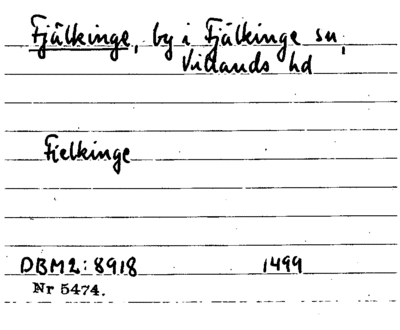 Fjälkinge, by i Fjälkinge sn,
Villands hd
Fielkinge
DBM2:8918 1499
Nr 5474.